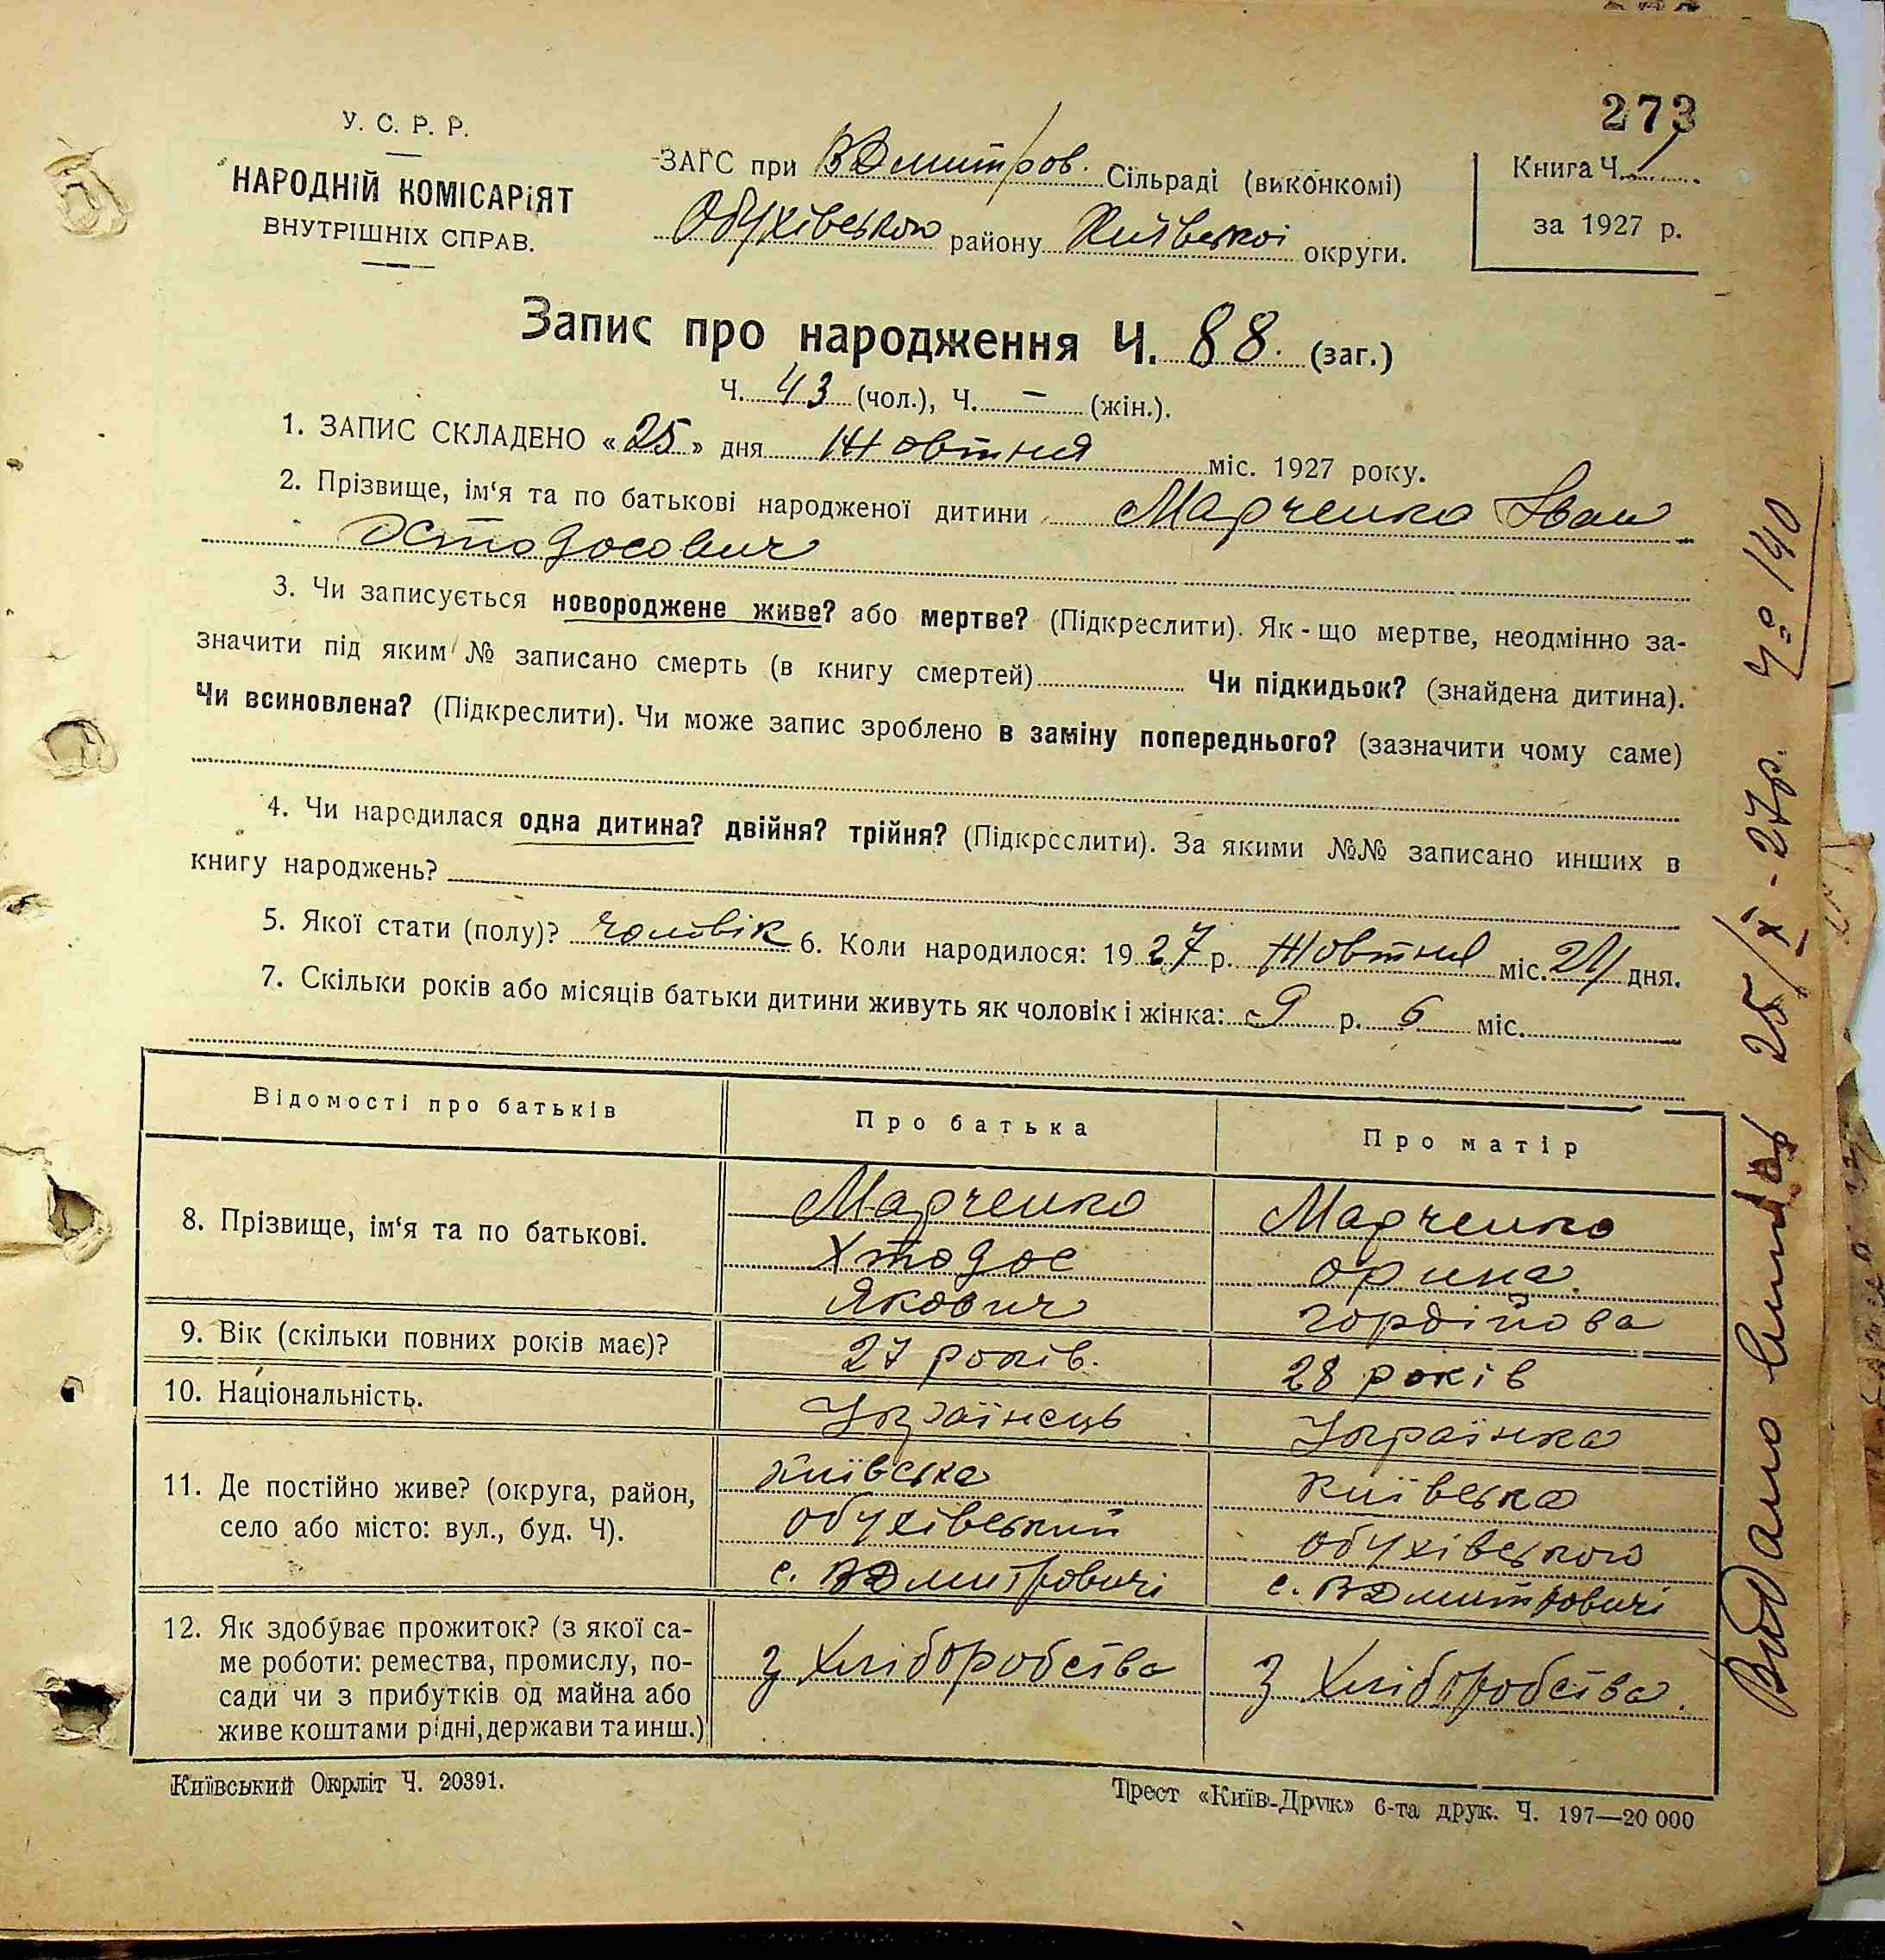 273
У. С. Р. Р.
НАРОДНІЙ КОМІСАРІЯТ
ВНУТРІШНІХ СПРАВ.
ЗАГС при ВДмитров. Сільраді (виконкомі)
Обухівського району Київської округи.
Книга Ч. 1
за 1927 р.
Запис про народження Ч. 88. (заг.)
Ч. 43 (чол.), Ч. — (жін.).
1. ЗАПИС СКЛАДЕНО «25» дня Жовтня міс. 1927 року.
2. Прізвище, ім‘я та по батькові народженої дитини Марченко Іван
3. Чи записується новороджене живе? або мертве? (Підкреслити). Як - що мертве, неодмінно за-
значити під яким № записано смерть (в книгу смертей) Чи підкидьок? (знайдена дитина).
Чи всиновлена? (Підкреслити). Чи може запис зроблено в заміну попереднього? (зазначити чому саме)
4. Чи народилася одна дитина? двійня? трійня? (Підкреслити). За якими №№ записано инших в
книгу народжень?
5. Якої стати (полу)? Чоловік 6. Коли народилося: 1927 р. Жовтня міс. 24 дня.
7. Скільки років або місяців батьки дитини живуть як чоловік і жінка: 9 р. 6 міс.
Відомості про батьків
Про батька
Про матір
8. Прізвище, ім‘я та по батькові.
Марченко
Хтодос
Якович
Марченко
Орина
Гордійова
9. Вік (скільки повних років має)?
27 років.
28 років
10. Національність.
Українець
Українка
11. Де постійно живе? (округа, район,
село або місто: вул., буд. Ч).
Київська
Обухівський
с. ВДмитровичі
Київська
Обухівського
с. ВДмитровичі
12. Як здобуває прожиток? (з якої са-
ме роботи: ремества, промислу, по-
сади чи з прибутків од майна або
живе коштами рідні, держави та инш.)
з Хліборобства
з Хліборобства.
Київський Окрліт Ч. 20391.
Трест «Київ-Друк» 6-та друк. Ч. 197—20 000
Видано 25/X-27р. Ч० 140